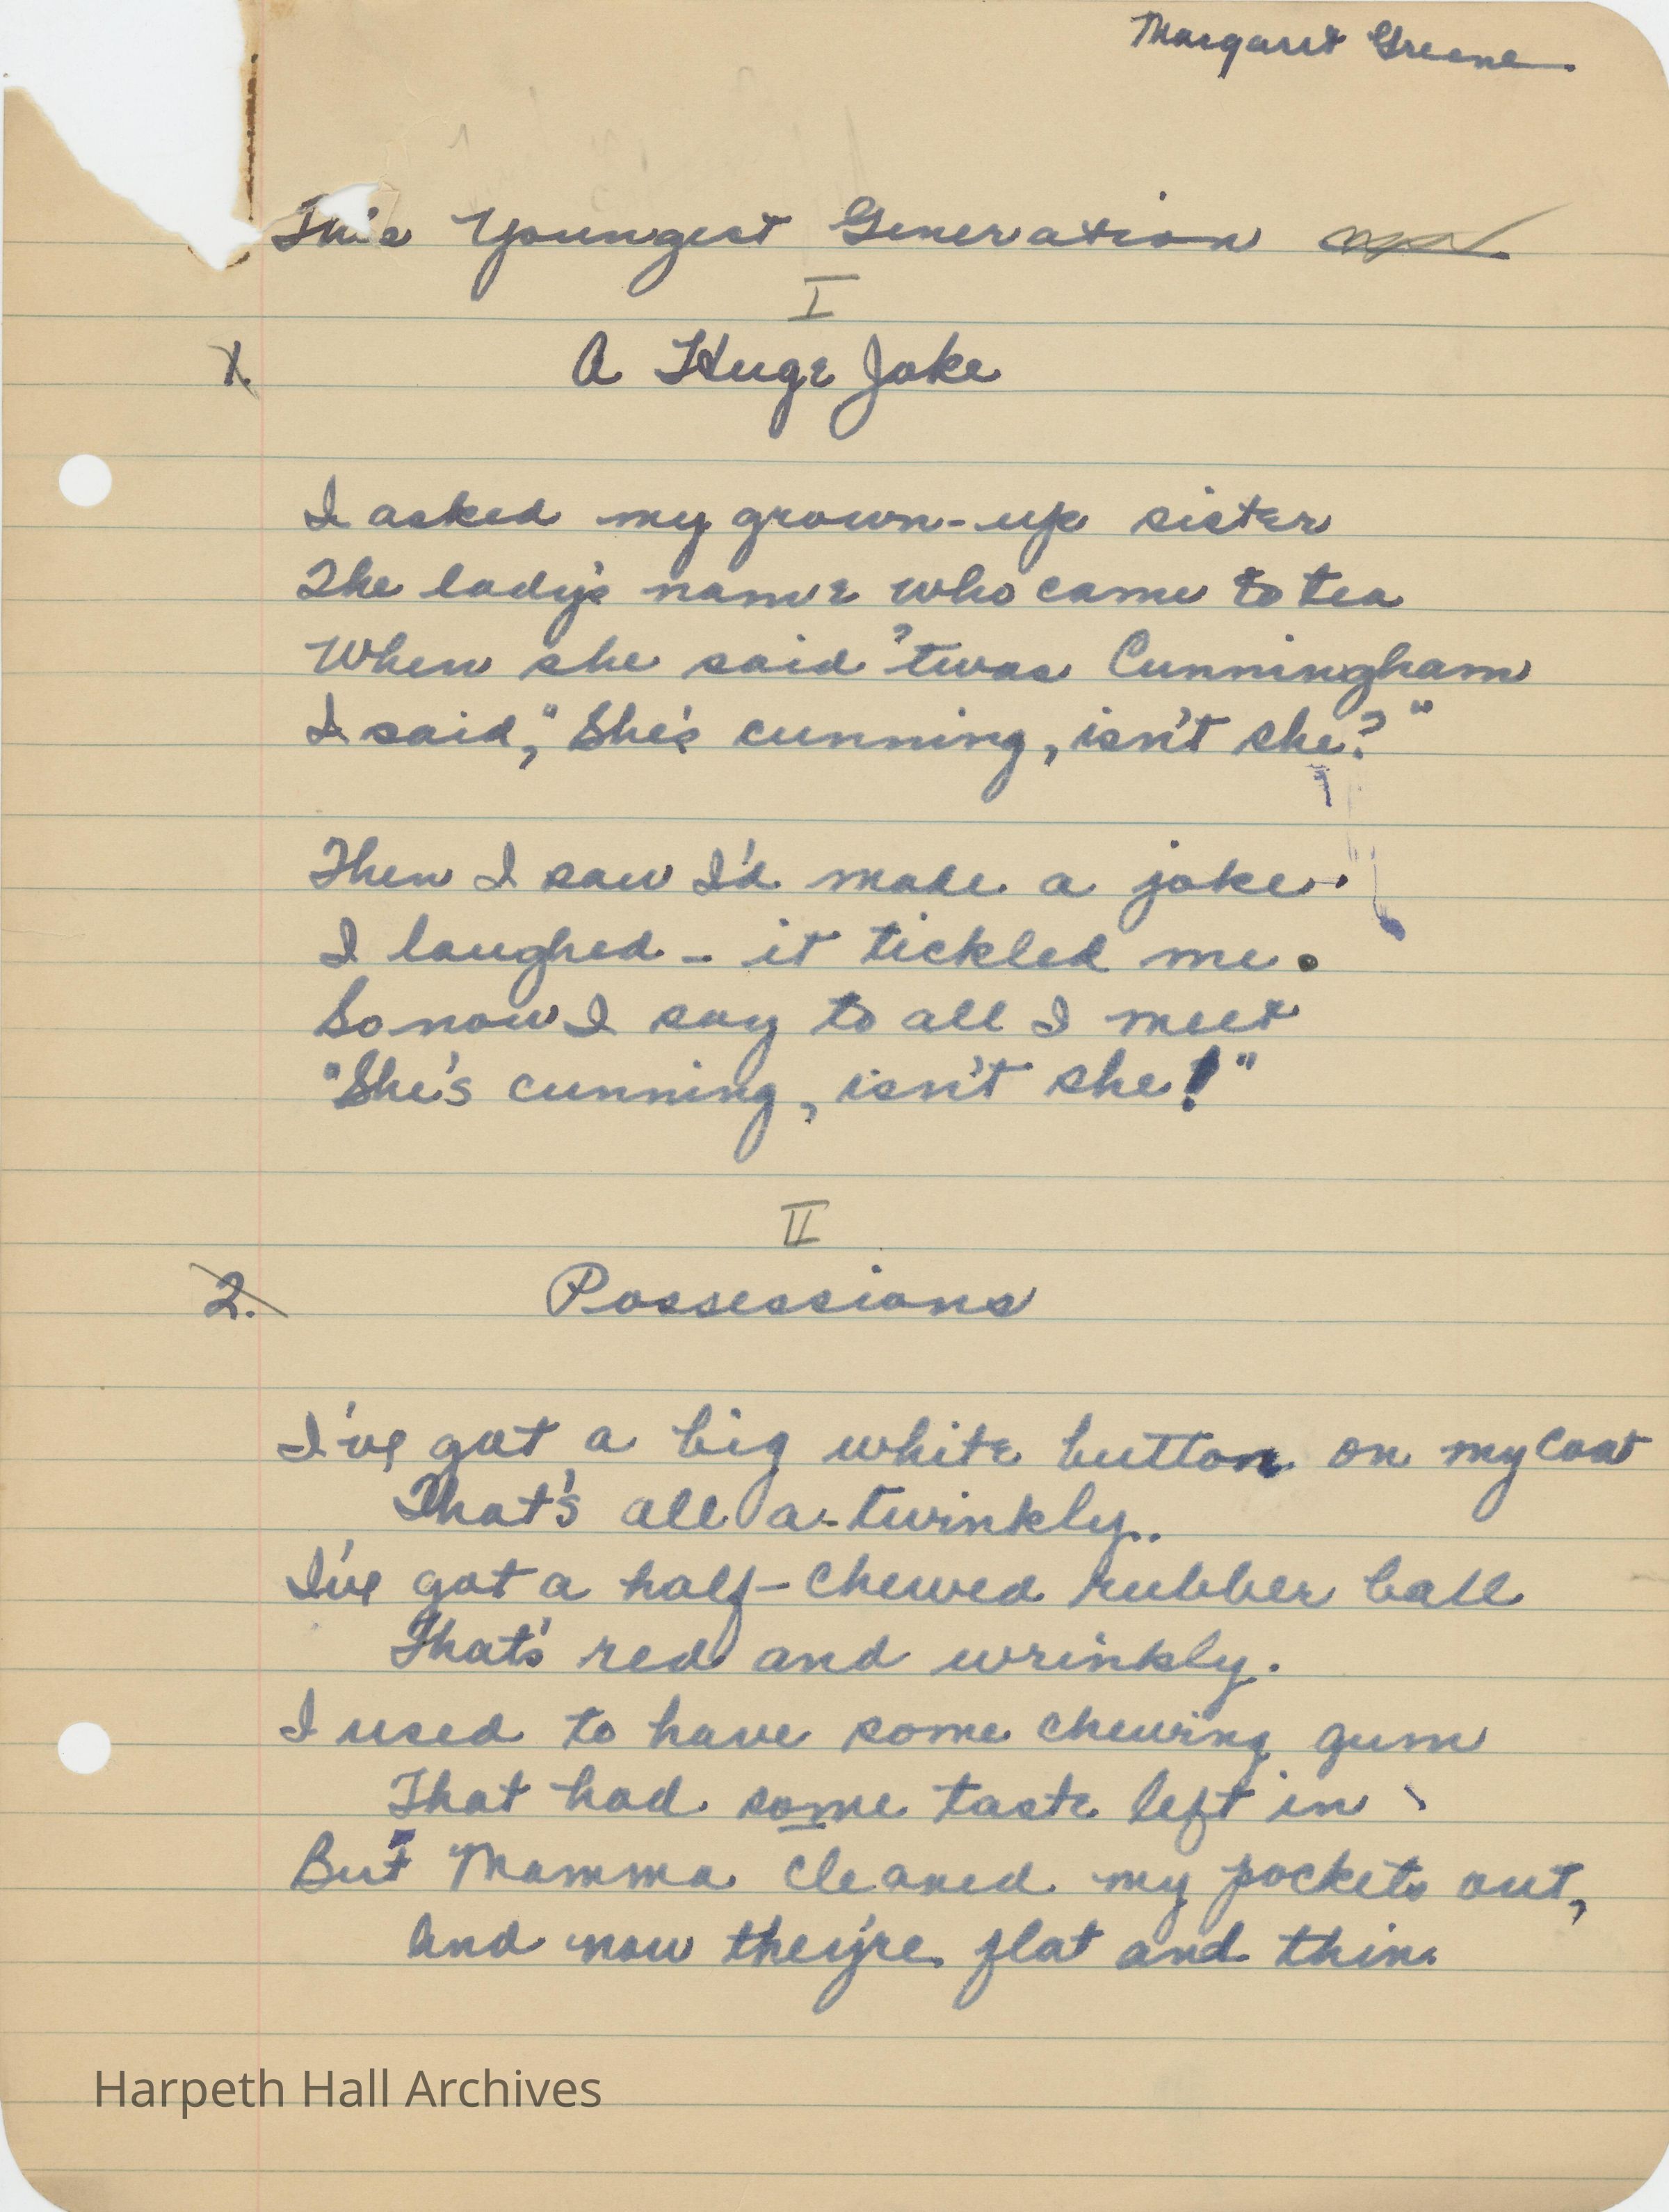 Margaret Greene.
This Youngest Generation
I
1. A Huge Joke
I asked my grown-up sister
The lady's name who came to tea
When she said 'twas Cunningham
I said, "She's cunning, isn't she?"
Then I saw I'd made a joke.
I laughed - it tickled me.
So now I say to all I meet
"She's cunning, isn't she!"
II
2. Possessions
I've got a big white button on my coat
That's all a-twinkly.
I've got a half-chewed rubber ball
That's red and wrinkly.
I used to have some chewing gum
That had some taste left in
But Mamma cleaned my pockets out,
And now they're flat and thin.
Harpeth Hall Archives